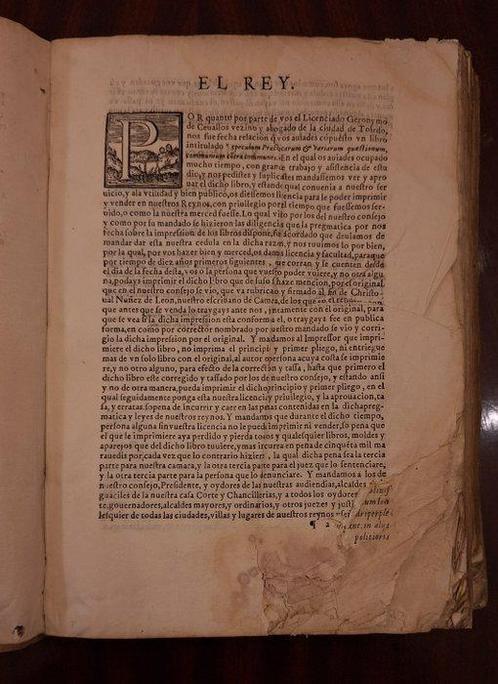 EL REY.
POR quanto por parte de vos el Licenciado Gieronymo
de Ceuallos vezino y abogado de la ciudad de Toledo,
nos fue fecha relacion q̃ vos auiades cõpuesto vn libro
intitulado Speculum Practicarum & Variarum quæstionum,
communium contra communes. En el qual os auiades ocupado
mucho tiempo, con grante trabajo y asistencia de estu
dio, y nos pedistes y suplicastes mandassemos ver y apro
uar el dicho libro, y estando qual conuenia a nuestro ser
uicio, y ala vtilidad y bien publico, os diessemos licencia para le poder imprimir
y vender en nuestros Reynos, con priuilegio por el tiempo que fuessemos ser-
uido, o como la nuestra merced fuesse. Lo qual visto por los del nuestro consejo
y como por su mandado se hizieron las diligencias que la pregmatica por nos
fecha sobre la impression de los libros dispone, fue acordado que deuiamos de
mandar dar esta nuestra cedula en la dicha razon, y nos tuuimos lo por bien,
por la qual, por vos hazer bien y merced, os damos licencia y facultad, para que
por tiempo de diez años primeros siguientes, que corran y se cuenten desde
el dia de la fecha desta, vos o la persona que vuestro poder vuiere, y no otra algu
na, podays imprimir el dicho libro que de suso se haze mencion, por el original
que en el nuestro consejo se vio, que va rubricado y firmado al fin de Christo-
ual Nuñez de Leon, nuestro escribano de Camara, de los que en el
que antes que se venda lo traygays ante nos, juntamente con el original, para
que se vea si la dicha impression esta conforme a el, o traygays fee en publica
forma, en como por corrector nombrado por nuestro mandado se vio y corri-
gio la dicha impression por el original. Y mandamos al Impressor que impri-
miere el dicho libro, no imprima el principio y primer pliego, ni entriegue
mas de vn solo libro con el original, al autor o persona a cuya costa se imprimie
re, y no otro alguno, para efecto de la correction y tassa, hasta que primero el
dicho libro este corregido y tassado por los de nuestro consejo, y estando ansi
y no de otra manera, pueda imprimir el dicho principio y primer pliego, en el
qual seguidamente ponga esta nuestra licencia y priuilegio, y la aprouacion, tas
sa, y erratas, so pena de incurrir y caer en las penas contenidas en la dicha preg-
matica y leyes de nuestros reynos. Y mandamos que durante el dicho tiempo,
persona alguna sin vuestra licencia no le pueda imprimir ni vender, so pena que
el que le imprimiere aya perdido y pierda todos y qualesquier libros, moldes y
aparejos que del dicho libro tuuiere, y mas incurra en pena de cinquenta mil ma
rauedis por cada vez que lo contrario hiziere, la qual dicha pena sea la tercia
parte para nuestra camara, y la otra tercia parte para el juez que lo sentenciare,
y la otra tercia parte para la persona que lo denunciare. Y mandamos a los de
nuestro consejo, Presidente, y oydores de las nuestras audiendias, alcaldes
guaciles de la nuestra casa Corte y Chancillerias, y a todos los oydores
te, gouernadores, alcaldes mayores, y ordinarios, y otros juezes y justi
lesquier de todas las ciudades, villas y lugares de nuestros reynos
¶ 2
politioris